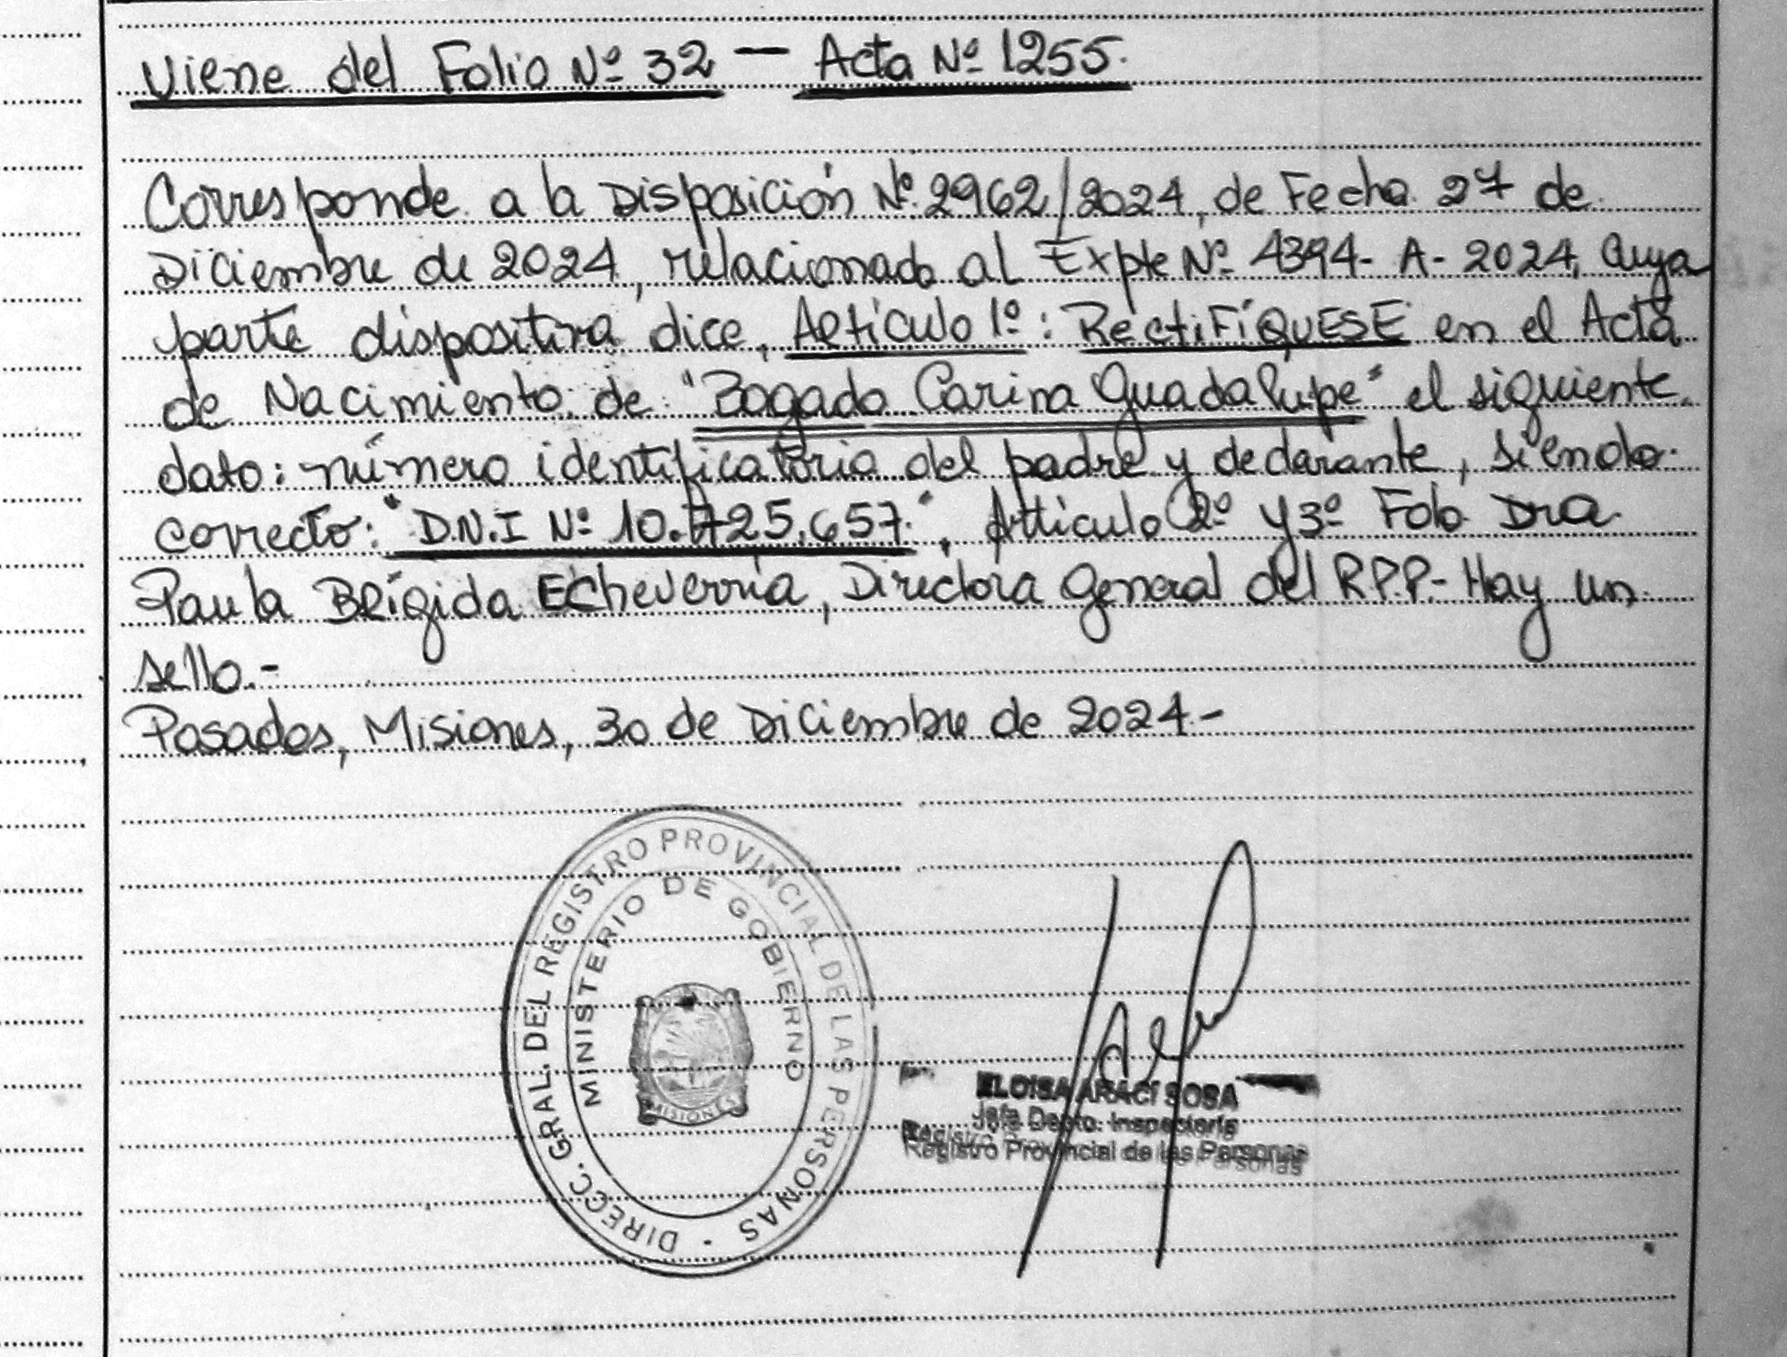 Viene del Folio Nº 32 — Acta Nº 1255.
Corresponde a la Disposición Nº 2962/2024, de Fecha 27 de
Diciembre de 2024, relacionado al Expte Nº 4394-A-2024, Cuya
parte dispositiva dice, Artículo 1º: RectiFíQUESE en el Acta
de Nacimiento de "Bogado Carina Guadalupe" el siguiente
dato: número identificatorio del padre y declarante, siendo
correcto: "D.N.I Nº 10.725.657.", Artículo 2º y 3º Fdo. Dra
Paula Brígida Echeverría, Directora General del R.P.P.- Hay un
sello.-
Posadas, Misiones, 30 de Diciembre de 2024.-
DIRECC. GRAL. DEL REGISTRO PROVINCIAL DE LAS PERSONAS
MINISTERIO DE GOBIERNO
MISIONES
ELOISA ARACÍ SOSA
Jefa Depto. Inspectoría
Registro Provincial de las Personas